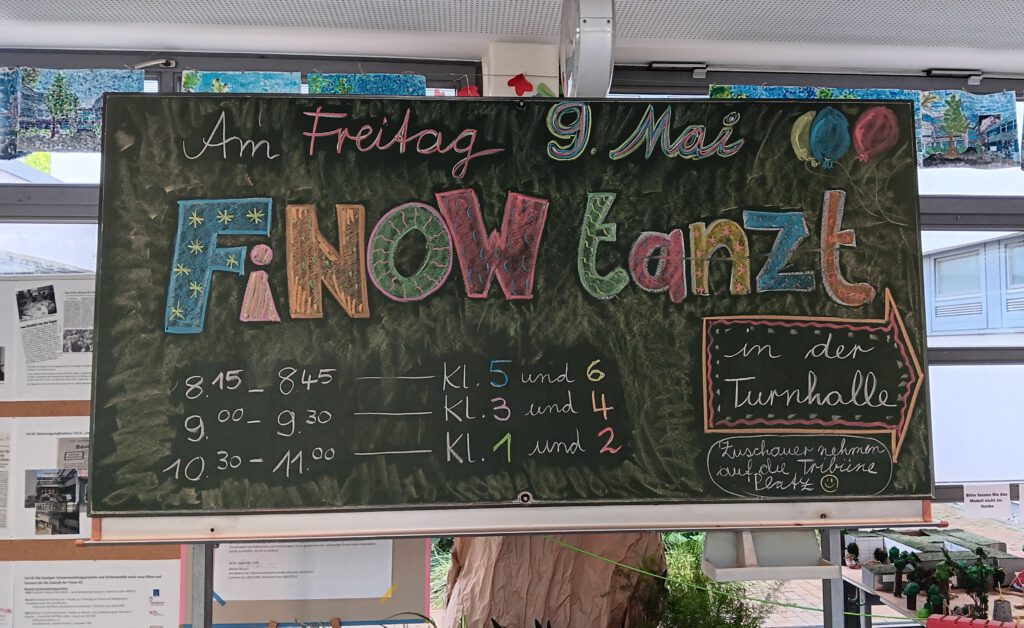 Am Freitag 9. Mai
FiNOW tanzt
8.15 – 8.45 — Kl. 5 und 6
9.00 – 9.30 — Kl. 3 und 4
10.30 – 11.00 — Kl. 1 und 2
in der
Turnhalle
Zuschauer nehmen
auf die Tribüne
Platz
Bitte fassen Sie das
Modell nicht an.
Danke